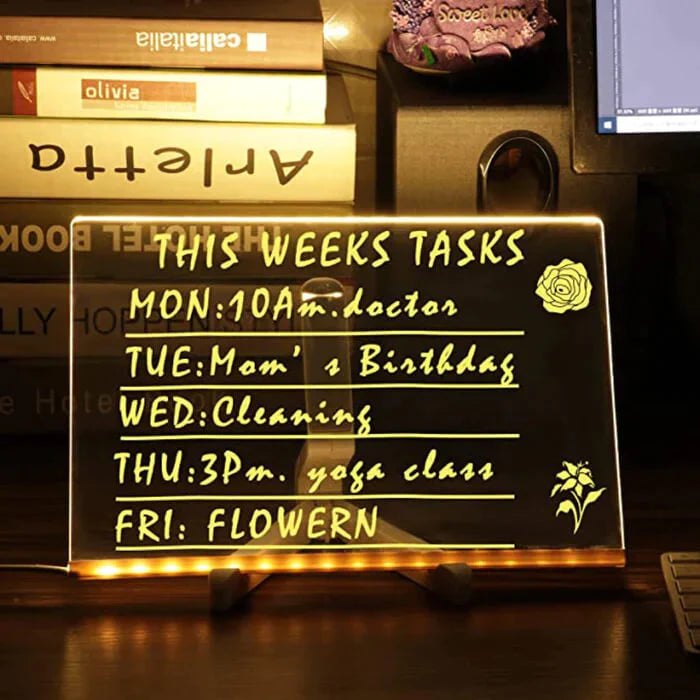 Sweet Love
www.caliaitalia.com
caliaitalia
olivia
Arletta
THE HOTEL BOOK
LLY HOPPEN STYL
e Hote
THIS WEEKS TASKS
MON:10Am.doctor
TUE:Mom's Birthday
WED:Cleaning
THU:3Pm. yoga class
FRI: FLOWERN